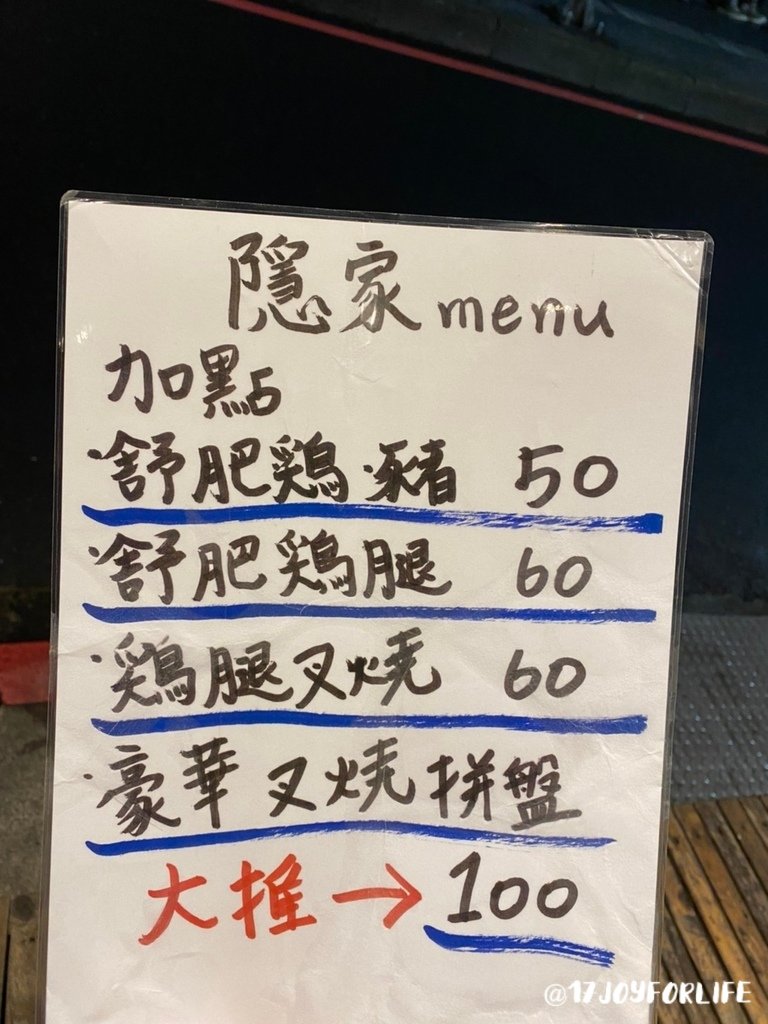 隱家menu
加點
·舒肥鶏·豬 50
·舒肥鶏腿 60
·鶏腿叉燒 60
·豪華叉燒拼盤
大推→100
@17JOYFORLIFE